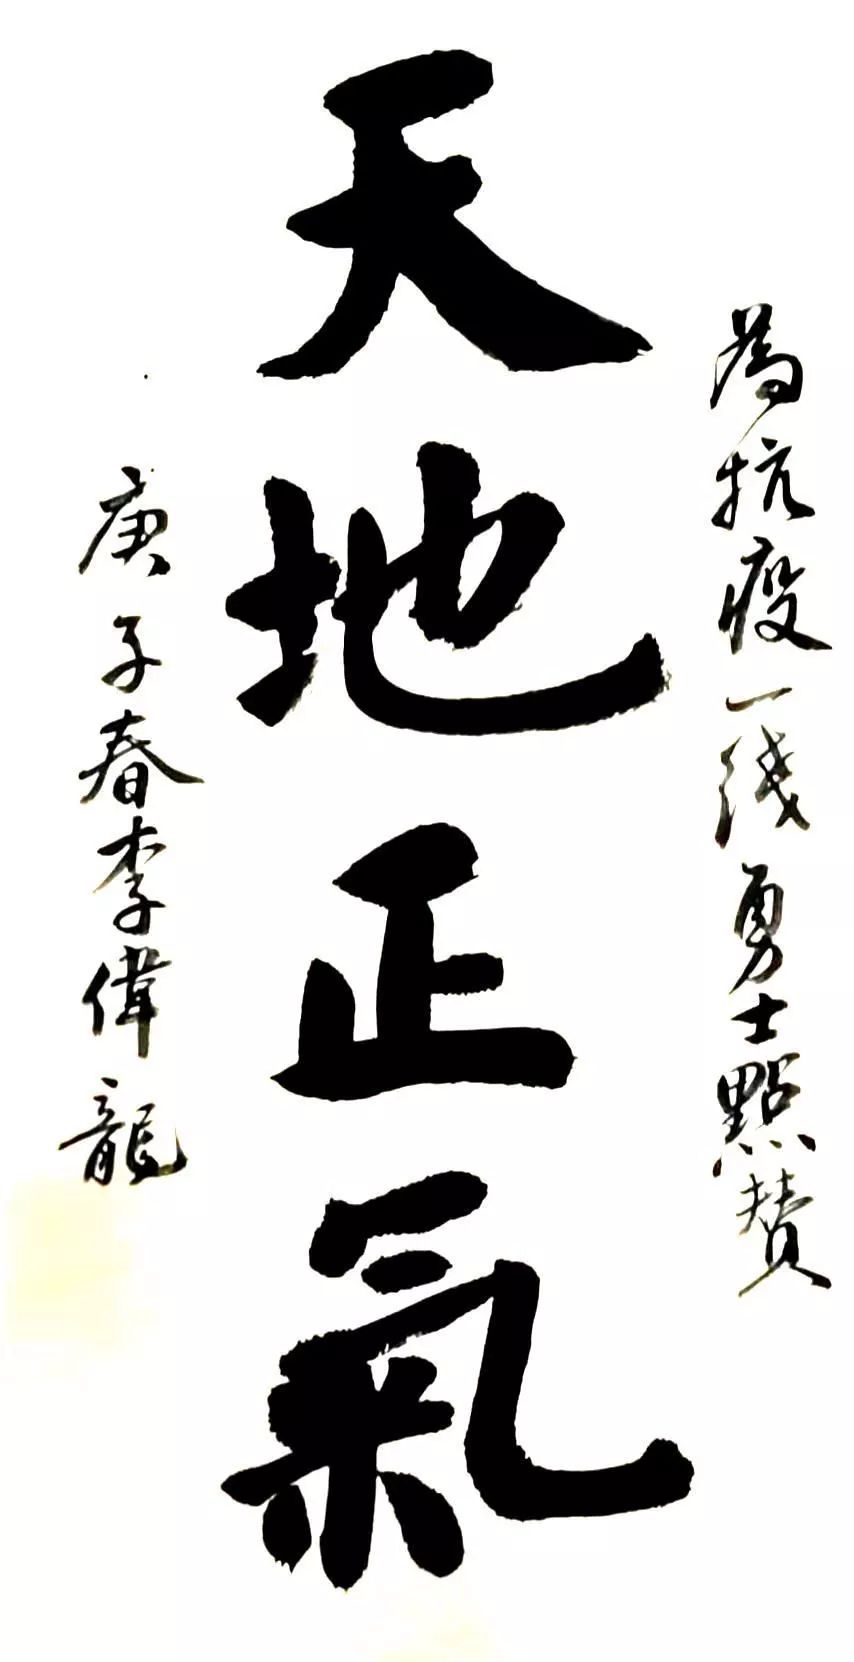 為抗疫一线勇士點赞
天地正氣
庚子春李偉龍